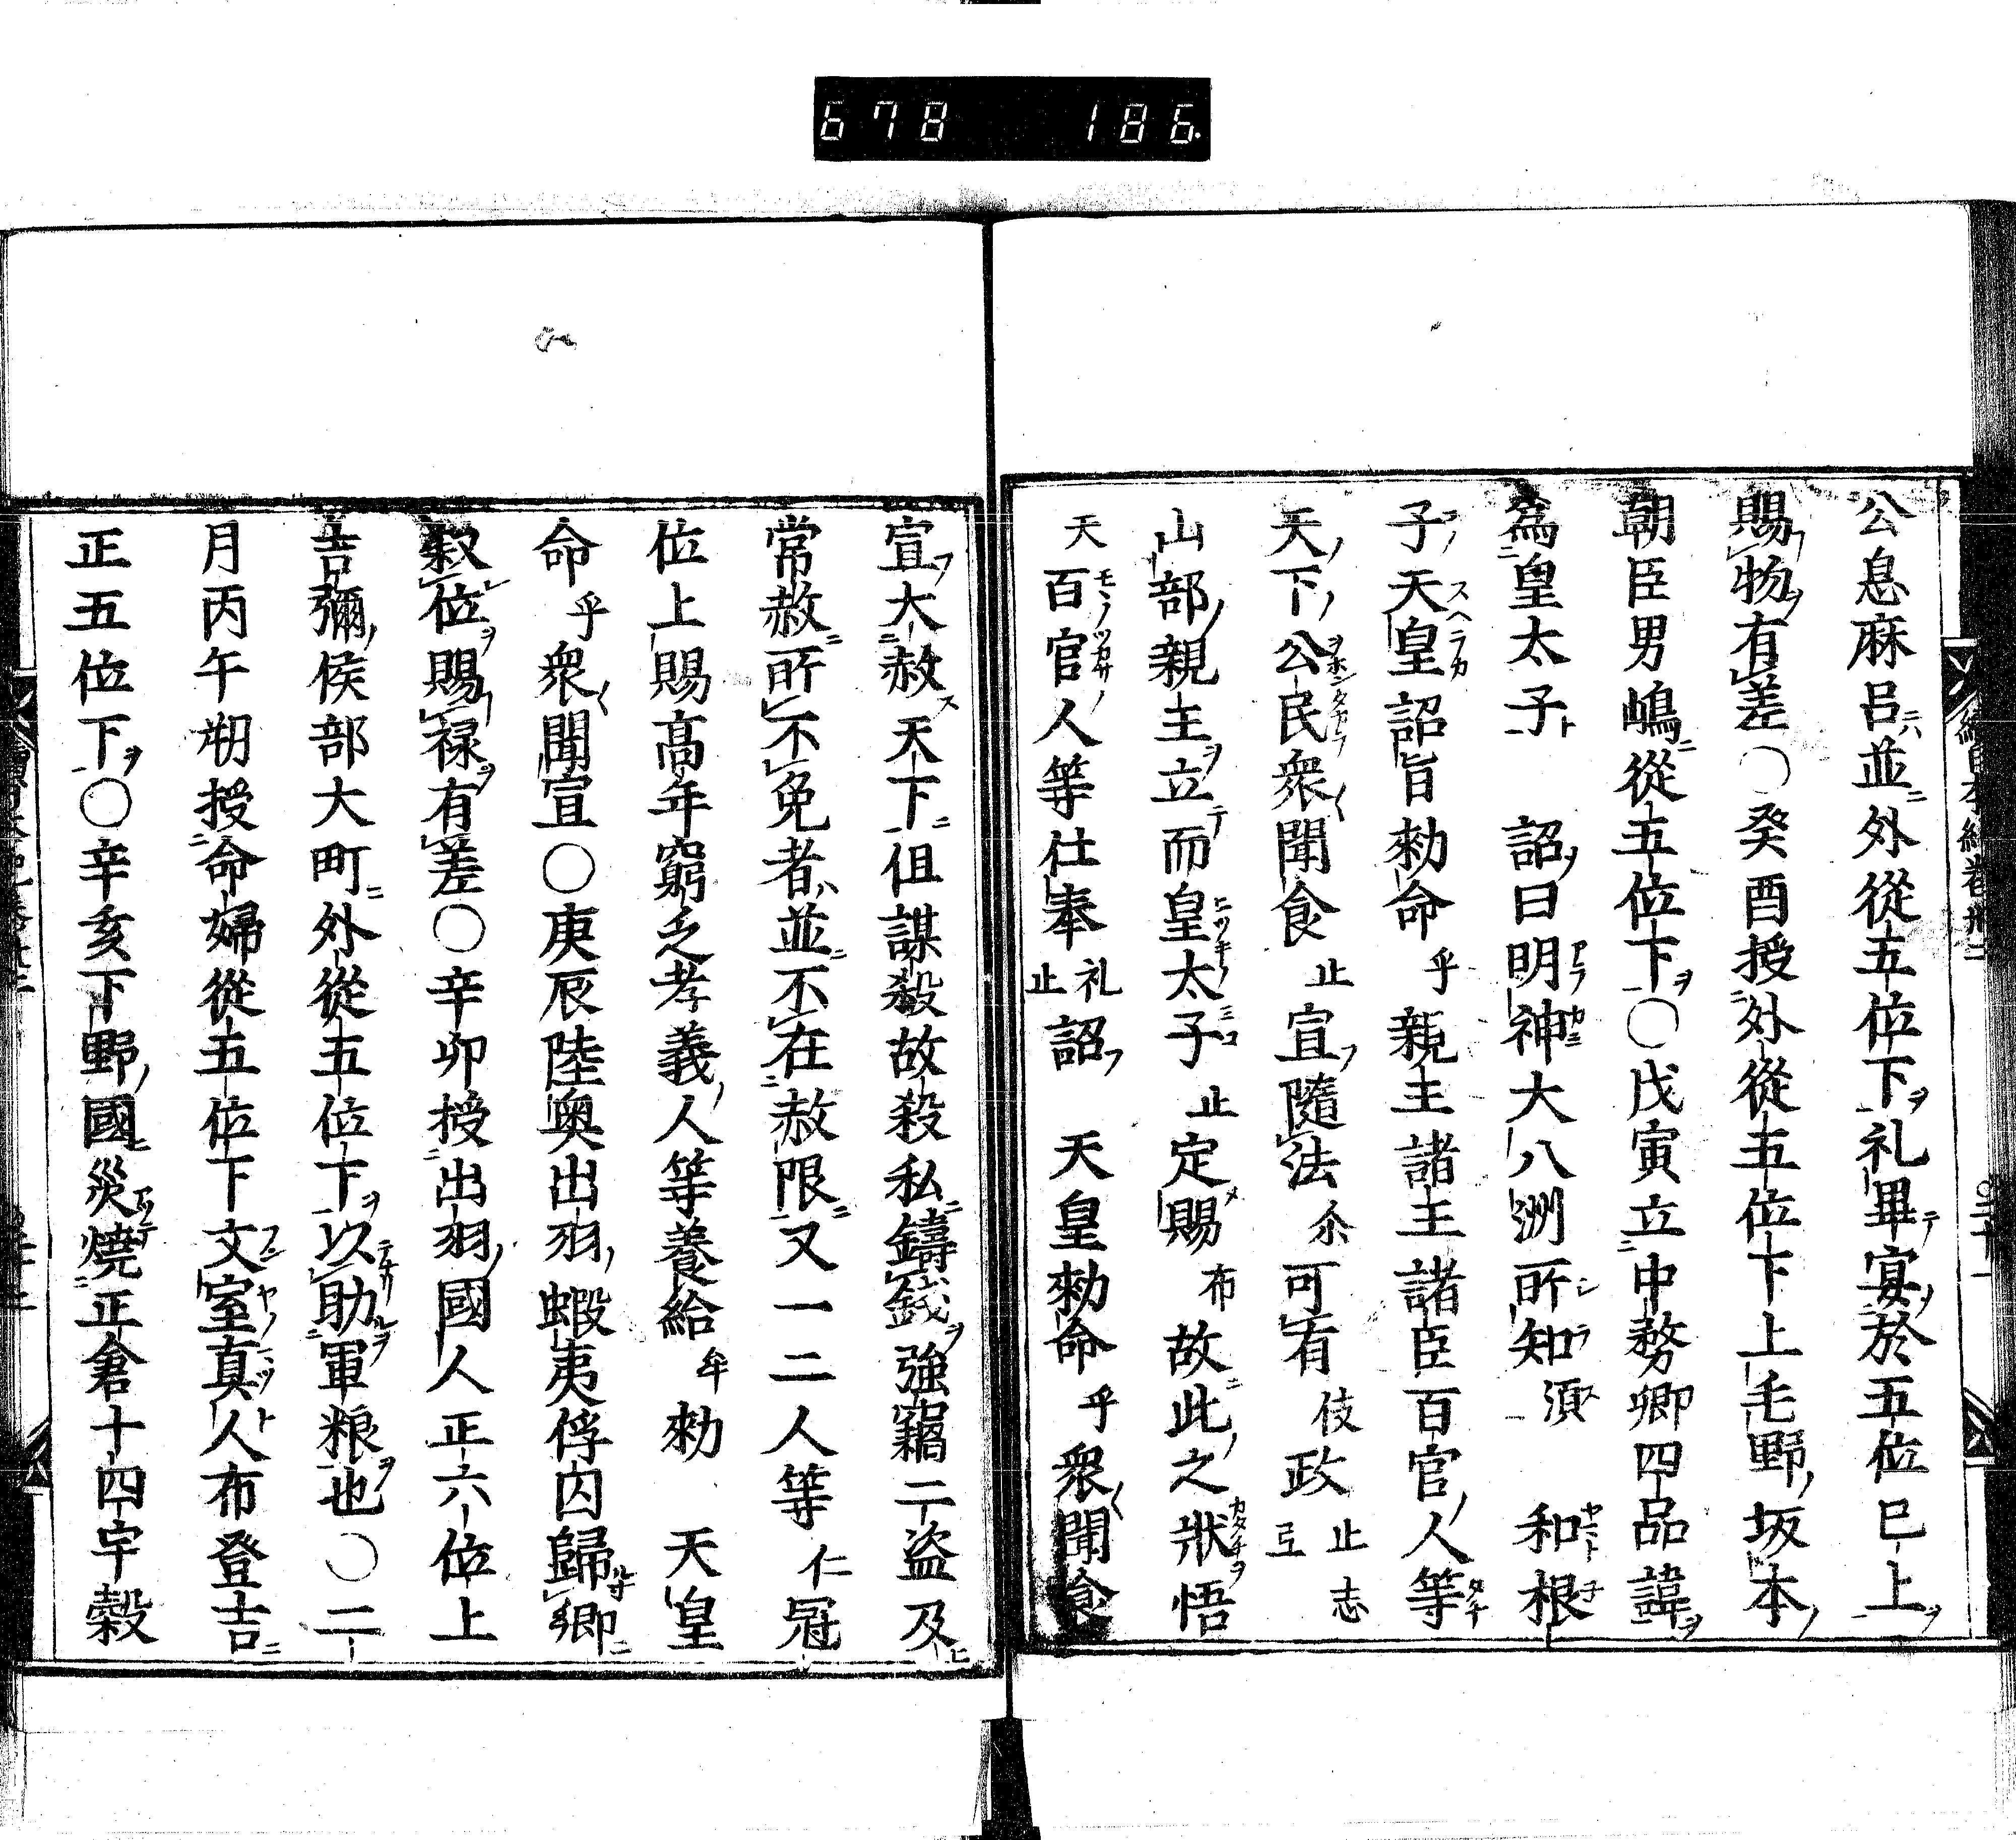 678 186
公息麻呂並外從五位下礼畢宴於五位已上
賜物有差○癸酉授外從五位下上毛野坂本
朝臣男嶋從五位下○戊寅立中務卿四品諱
為皇太子 詔曰明神大八洲所知湏 和根
子天皇詔旨勅命乎親王諸王諸臣百官人等
天下公民衆聞食止宣隨法尓可有伎政止志弖
山部親王立而皇太子止定賜布故此之狀悟
天百官人等仕奉礼止詔 天皇勅命乎衆聞食
宣大赦天下但謀殺故殺私鑄錢強竊二盜及
常赦所不免者並不在赦限又一二人等仁冠
位上賜高年窮乏孝義人等養給牟勅 天皇
命乎衆聞宣○庚辰陸奧出羽蝦夷俘囚歸鄉
叙位賜祿有差○辛卯授出羽國人正六位上
吉彌侯部大町外從五位下以助軍粮也○二
月丙午朔授命婦從五位下文室真人布登吉
正五位下○辛亥下野國災燒正倉十四宇穀